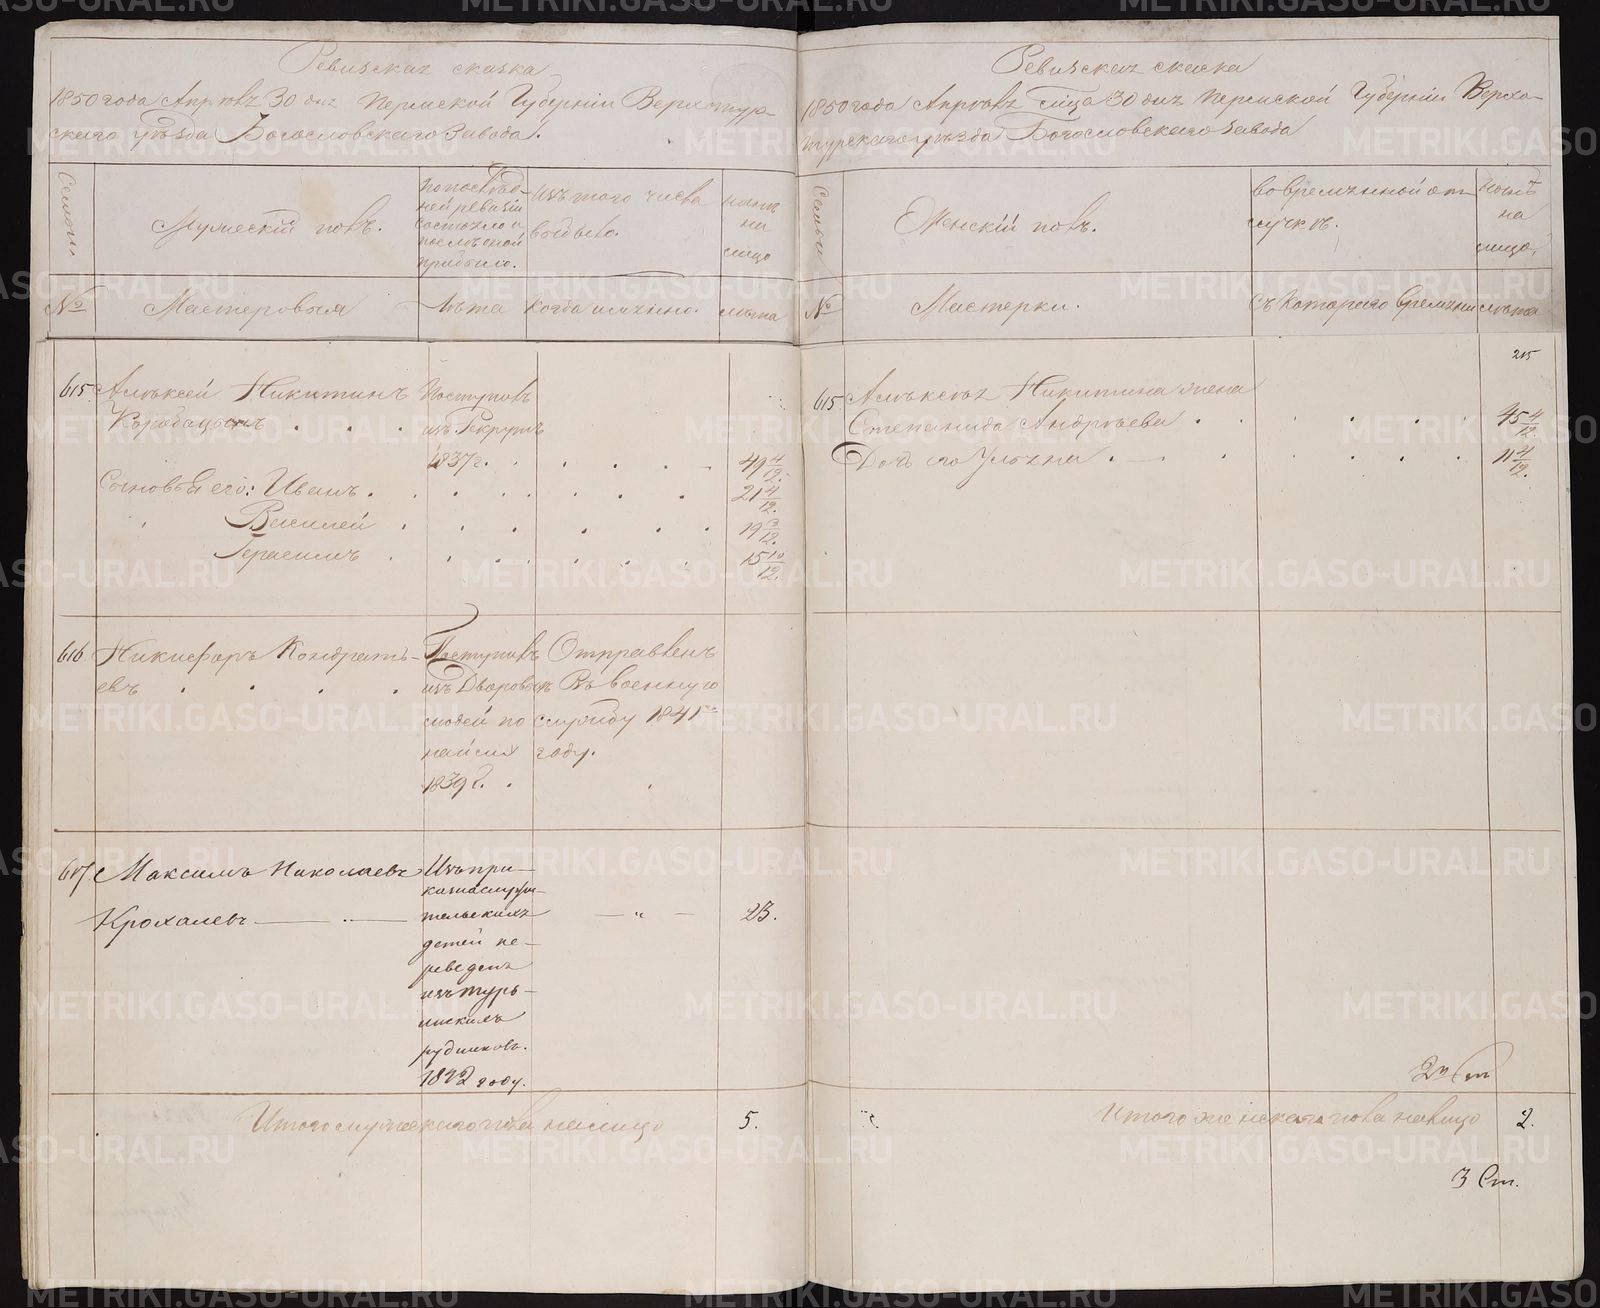 Ревизская сказка
1850 года Апреля 30 дня Пермской Губернии Верхотур-
скаго уезда Богословскаго завода.
Семьи
Мужеский полъ.
По послед-
ней ревизии
состояло и
после оной
прибыло.
Изъ того числа
выбыло.
Ныне
на
лицо
№
Мастеровыя
Лета
Когда именно.
Лета
615. Алексей Никитинъ
Поступилъ
изъ Рекрутъ
1837 г.
49 4/12.
Сыновья его: Иванъ.
21 4/12.
Василей
19 3/12.
Герасимъ
15 10/12.
616 Никифоръ Кондрать-
евъ
Поступилъ
изъ Дворовыхъ
людей по
1839 г.
Отправленъ
Въ военную
службу 1841го
году.
617. Максимъ Николаевъ
Крохалевъ
Изъ при-
казнослужи-
тельскихъ
детей пе-
реведенъ
изъ Турь-
инскихъ
рудниковъ.
1842 году.
— „ —
23.
Итого мужескаго пола налицо
5.
Ревизская сказка
1850 года Апреля м-ца 30 дня Пермской Губернии Верхо-
турскаго уезда Богословскаго завода
Семьи
Женский полъ.
Во временной от-
лучке.
Ныне
на
лицо.
№
Мастерки.
Съ котораго времени
лета
215
615 Алексея Никитина жена
Степанида Андреева
45 4/12.
Дочь его Ульяна
11 4/12.
Итого женскаго пола налицо
2.
3 Ст.
METRIKI.GASO-URAL.RU